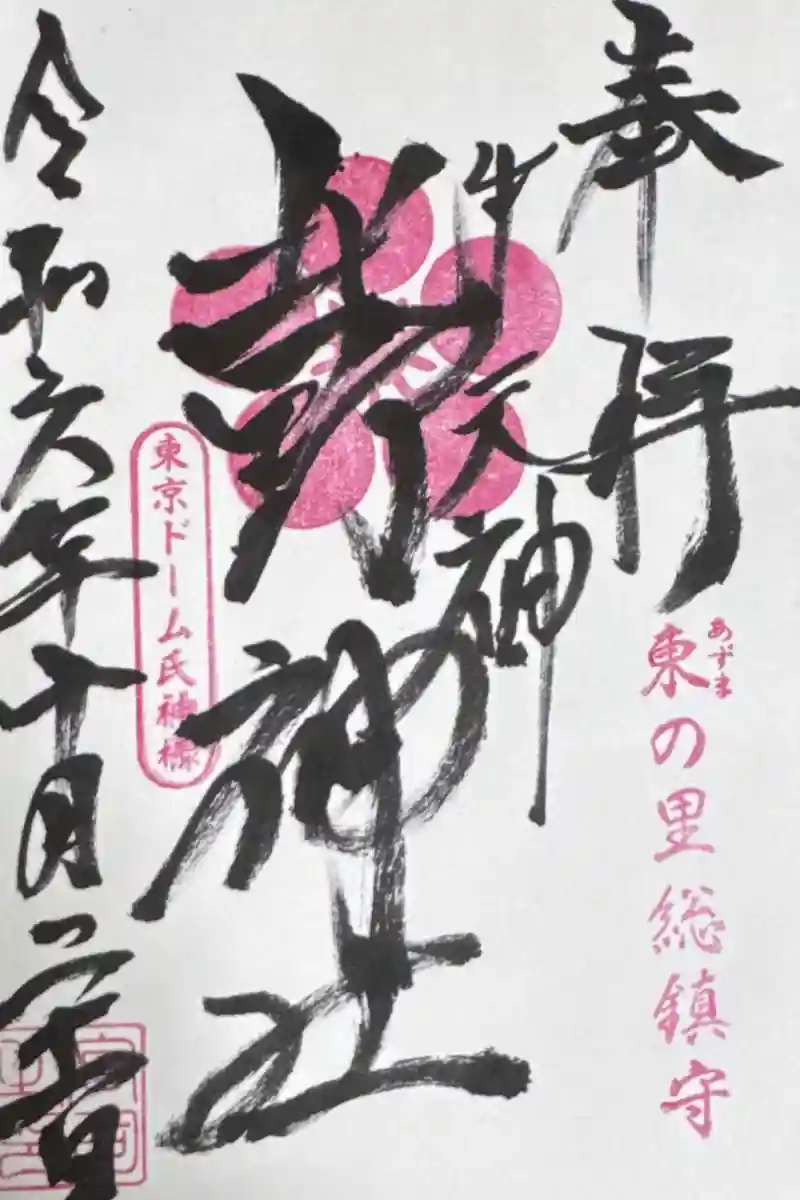 奉拝
東の里総鎮守
あずま
牛天神
北野神社
東京ドーム氏神様
令和六年十月二十日